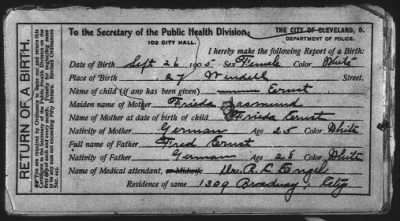 RETURN OF A BIRTH.
To the Secretary of the Public Health Division:
102 CITY HALL.
THE CITY OF CLEVELAND, O.
DEPARTMENT OF POLICE.
I hereby make the following Report of a Birth:
Date of Birth Sept 26 1905 Sex Female Color White
Place of Birth 27 Wendell Street.
Name of child (if any has been given) Ernst
Maiden name of Mother Frieda
Name of Mother at date of birth of child Frieda Ernst
Nativity of Mother German Age 25 Color White
Full name of Father Fred Ernst
Nativity of Father German Age 28 Color White
Name of Medical attendant, or Midwife, Dr. R. L. Engel
Residence of same 1309 Broadway, City